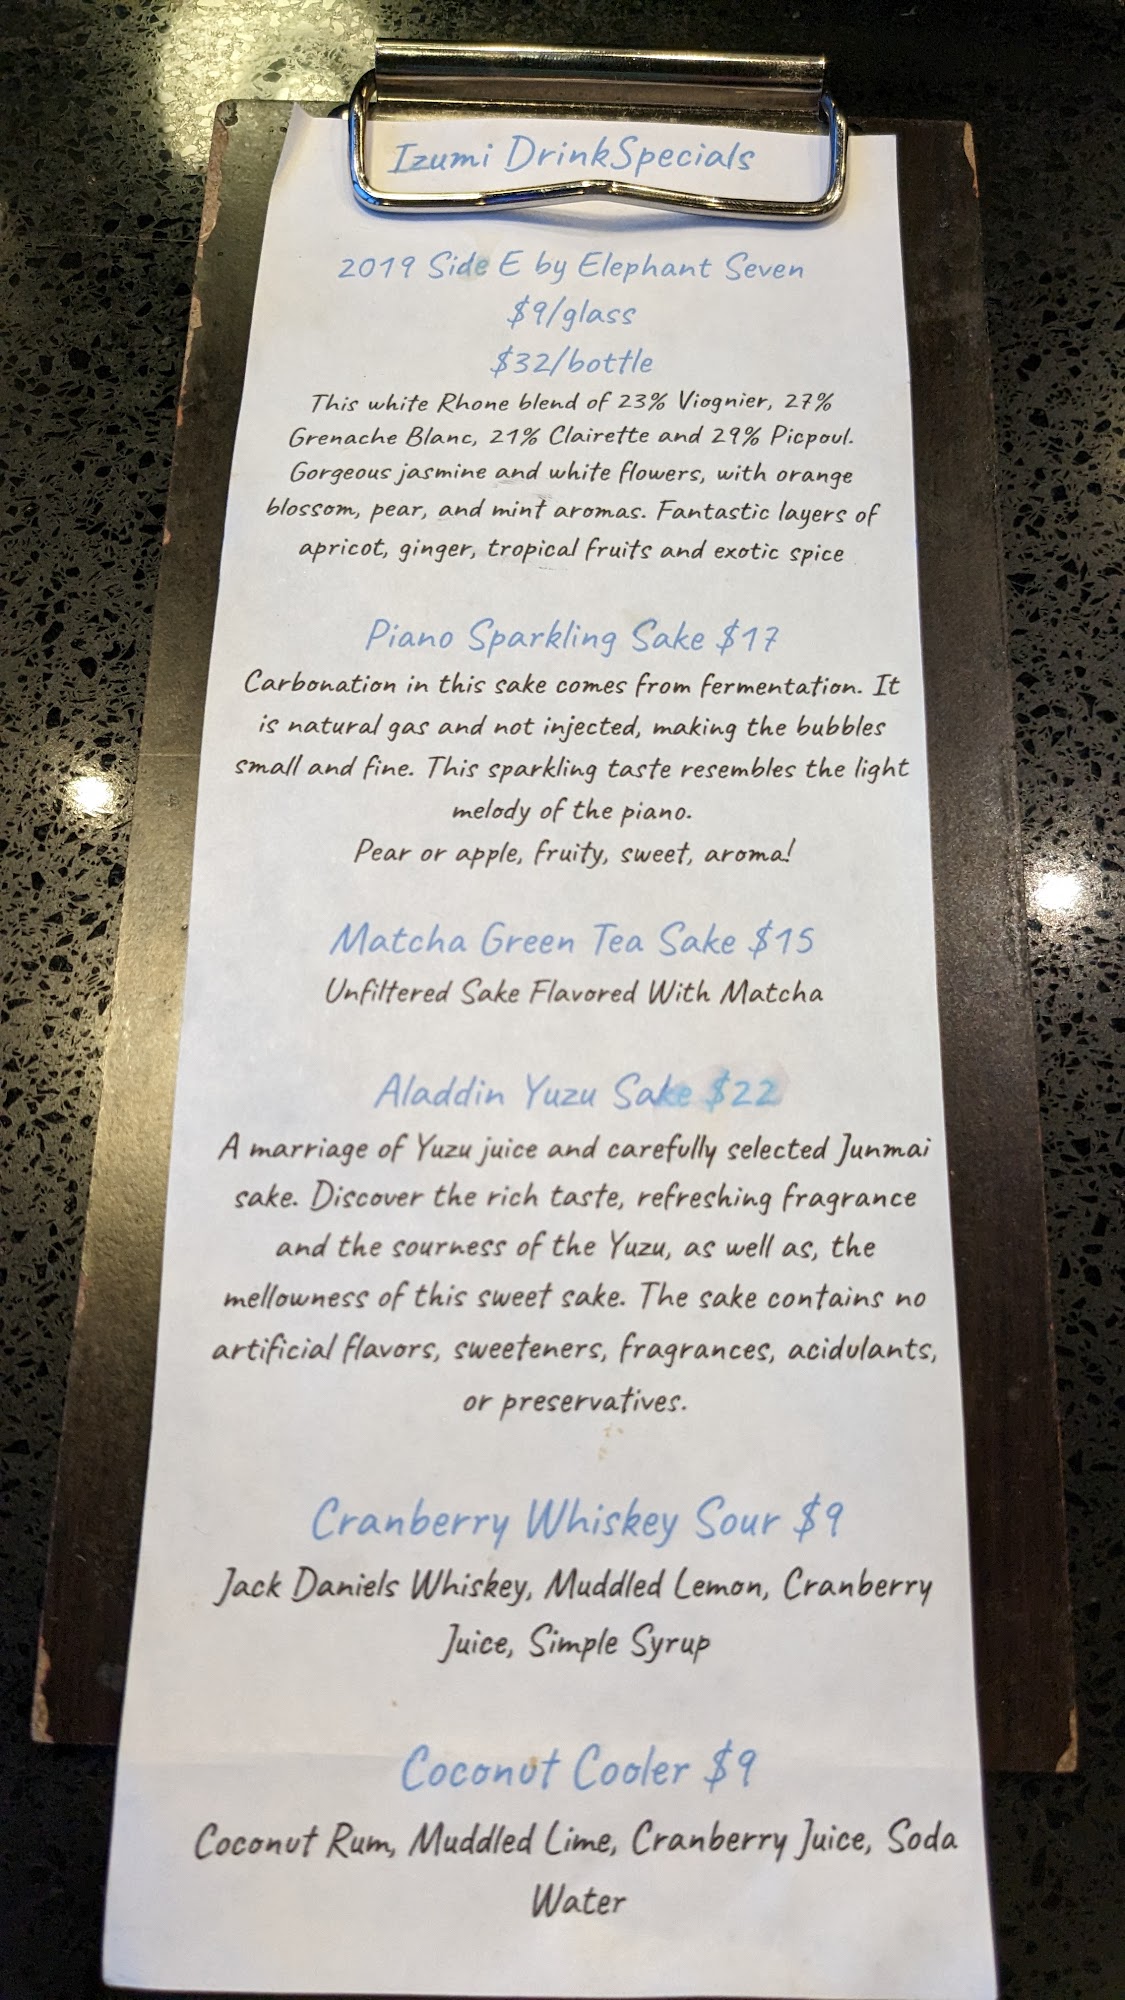 Izumi DrinkSpecials
2019 Side E by Elephant Seven
$9/glass
$32/bottle
This white Rhone blend of 23% Viognier, 27%
Grenache Blanc, 21% Clairette and 29% Picpoul.
Gorgeous jasmine and white flowers, with orange
blossom, pear, and mint aromas. Fantastic layers of
apricot, ginger, tropical fruits and exotic spice
Piano Sparkling Sake $17
Carbonation in this sake comes from fermentation. It
is natural gas and not injected, making the bubbles
small and fine. This sparkling taste resembles the light
melody of the piano.
Pear or apple, fruity, sweet, aroma!
Matcha Green Tea Sake $15
Unfiltered Sake Flavored With Matcha
Aladdin Yuzu Sake $22
A marriage of Yuzu juice and carefully selected Junmai
sake. Discover the rich taste, refreshing fragrance
and the sourness of the Yuzu, as well as, the
mellowness of this sweet sake. The sake contains no
artificial flavors, sweeteners, fragrances, acidulants,
or preservatives.
Cranberry Whiskey Sour $9
Jack Daniels Whiskey, Muddled Lemon, Cranberry
Juice, Simple Syrup
Coconut Cooler $9
Coconut Rum, Muddled Lime, Cranberry Juice, Soda
Water